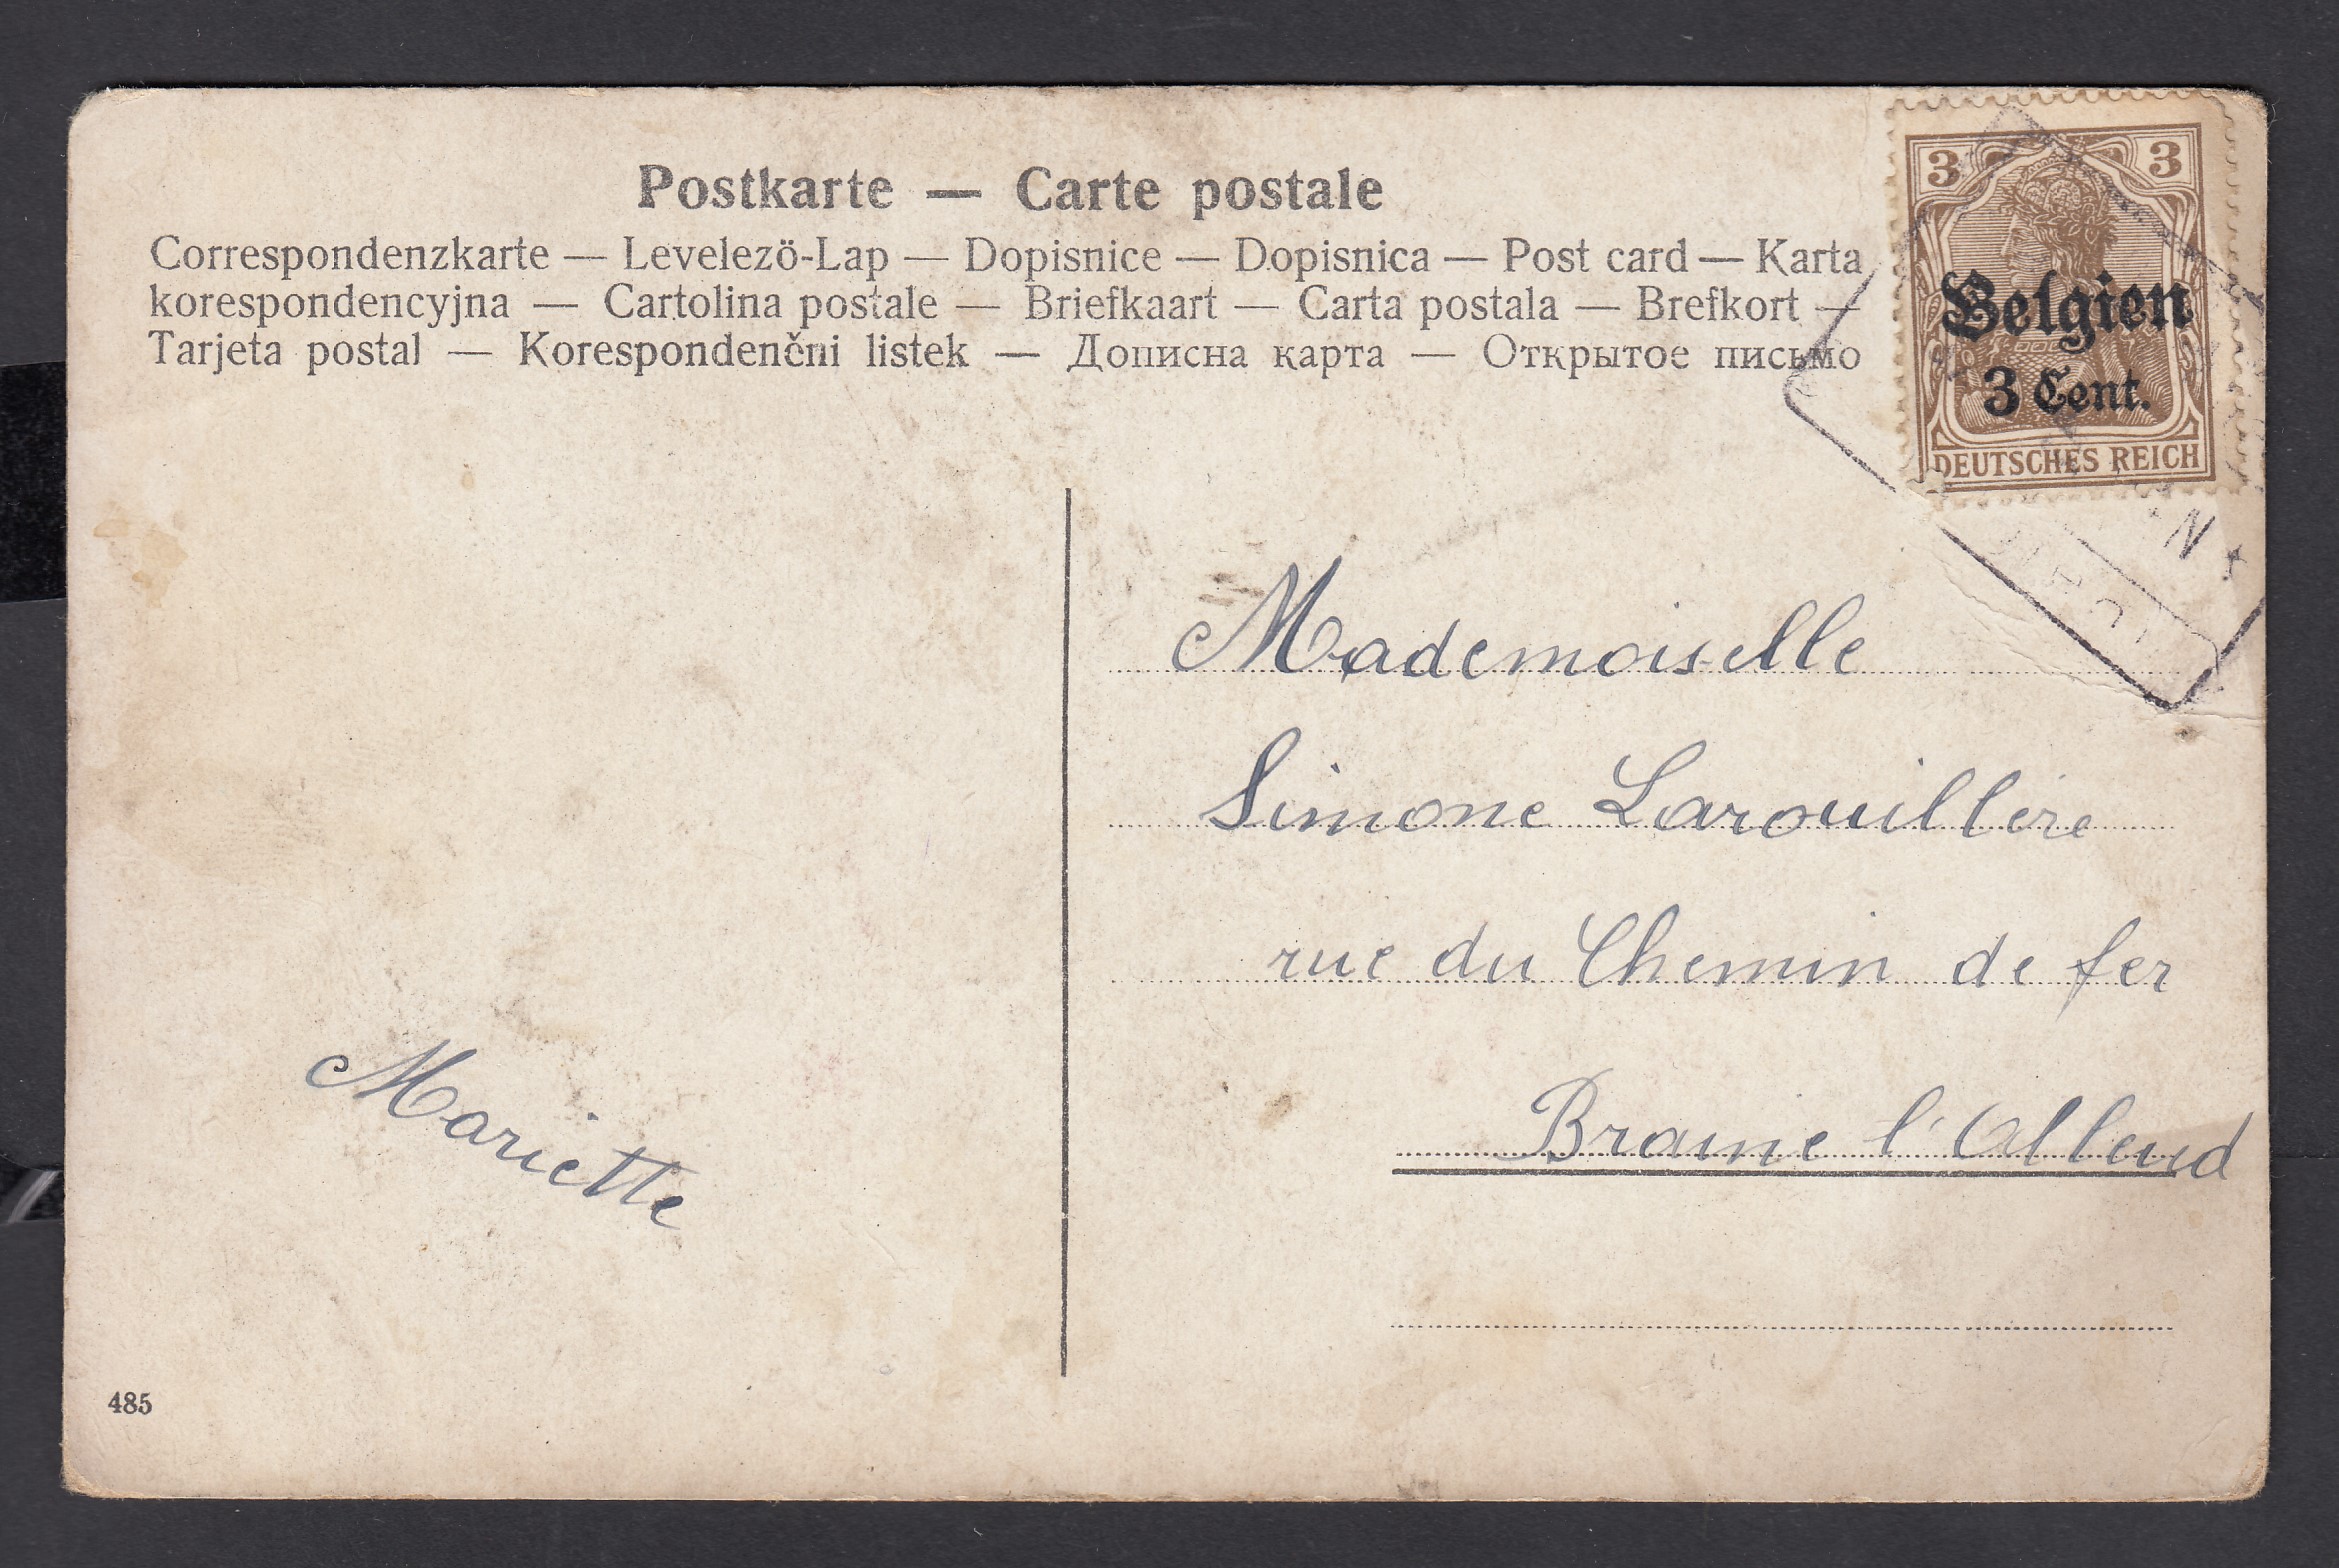 Postkarte — Carte postale
Correspondenzkarte — Levelezö-Lap — Dopisnice — Dopisnica — Post card — Karta
korespondencyjna — Cartolina postale — Briefkaart — Carta postala — Brefkort —
Tarjeta postal — Korespondenčni listek — Дописна карта — Открытое письмо
3 3
Belgien
3 Cent.
DEUTSCHES REICH
Mademoiselle
Simone Larouillère
rue du Chemin de fer
Braine l'Alleud
Mariette
485